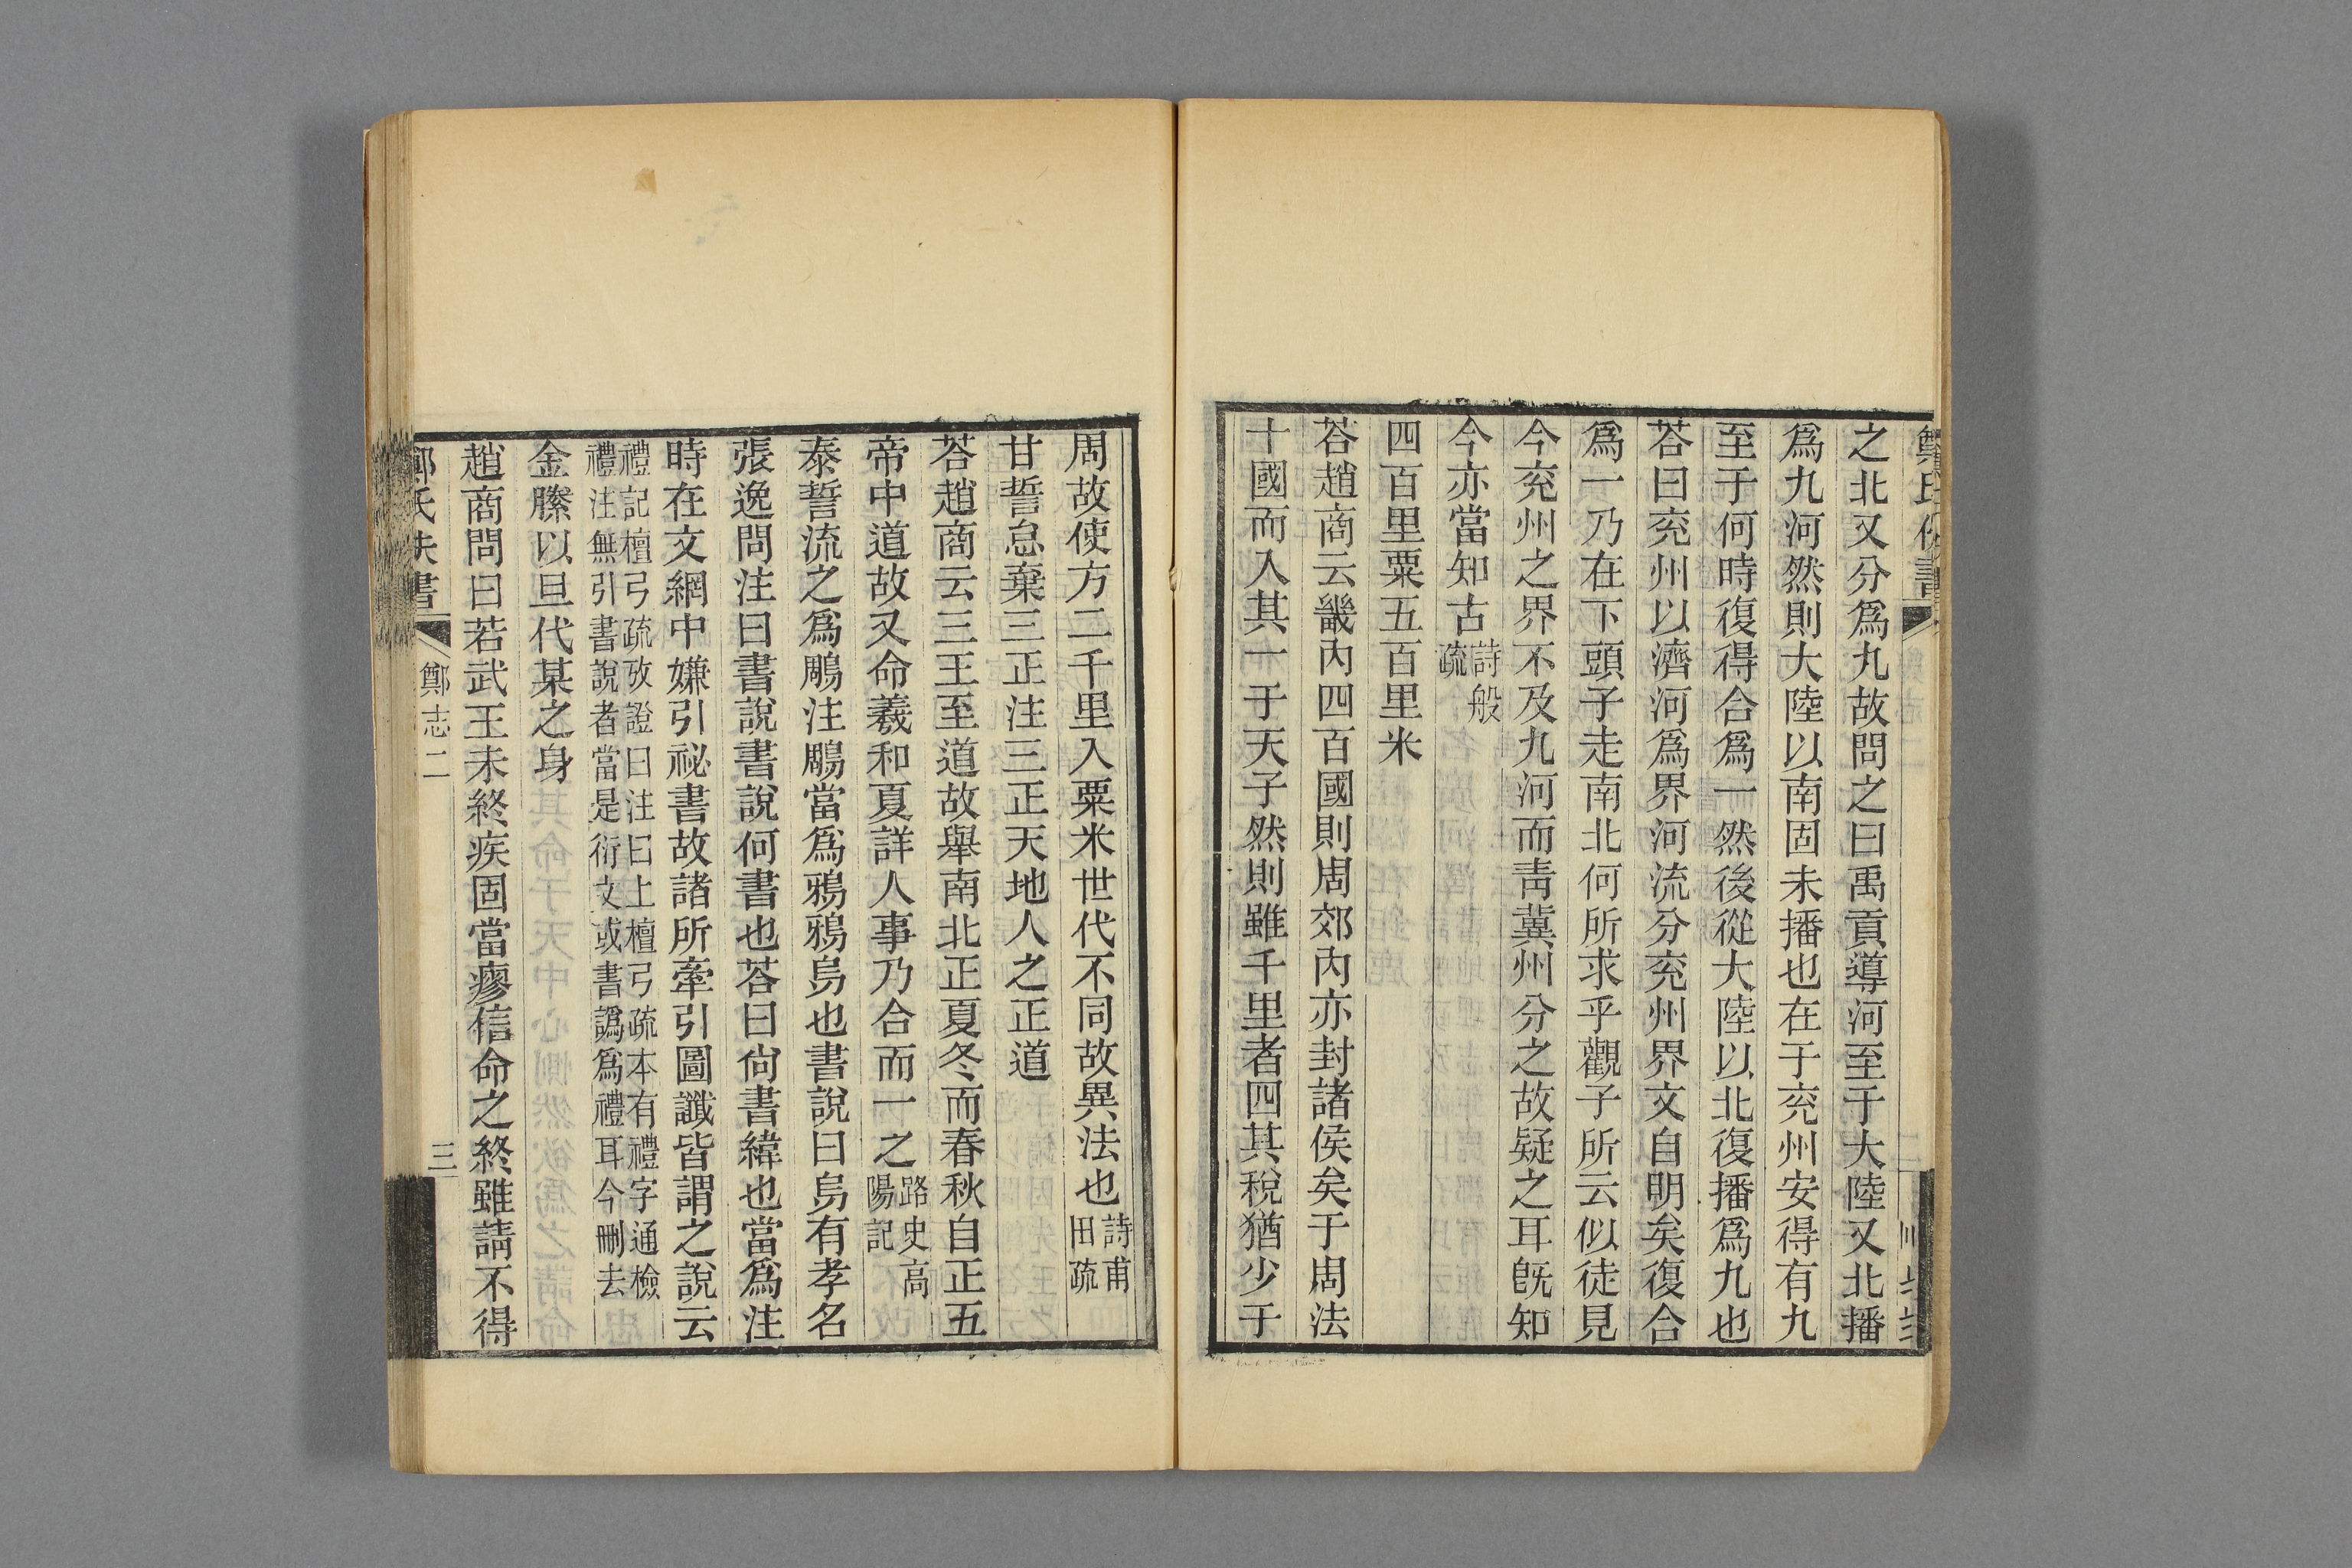 之北又分爲九故問之曰禹貢導河至于大陸又北播
爲九河然則大陸以南固未播也在于兖州安得有九
至于何時復得合爲一然後從大陸以北復播爲九也
荅曰兖州以濟河爲界河流分兖州界文自明矣復合
爲一乃在下頭子走南北何所求乎觀子所云似徒見
今兖州之界不及九河而靑冀州分之故疑之耳旣知
今亦當知古詩般
疏
四百里粟五百里米
荅趙商云畿內四百國則周郊內亦封諸侯矣于周法
十國而入其一于天子然則雖千里者四其稅猶少于
周故使方二千里入粟米世代不同故異法也詩甫
田疏
甘誓怠棄三正注三正天地人之正道
荅趙商云三王至道故舉南北正夏冬而春秋自正五
帝中道故又命羲和夏詳人事乃合而一之路史高
陽記
泰誓流之爲鵰注鵰當爲鴉鴉烏也書說曰烏有孝名
張逸問注曰書說書說何書也荅曰尙書緯也當爲注
時在文網中嫌引祕書故諸所牽引圖讖皆謂之說云
禮記檀弓疏攷證曰注曰上檀弓疏本有禮字通檢
禮注無引書說者當是衍文或書譌爲禮耳今刪去
金縢以旦代某之身
趙商問曰若武王未終疾固當瘳信命之終雖請不得
鄭志二
三